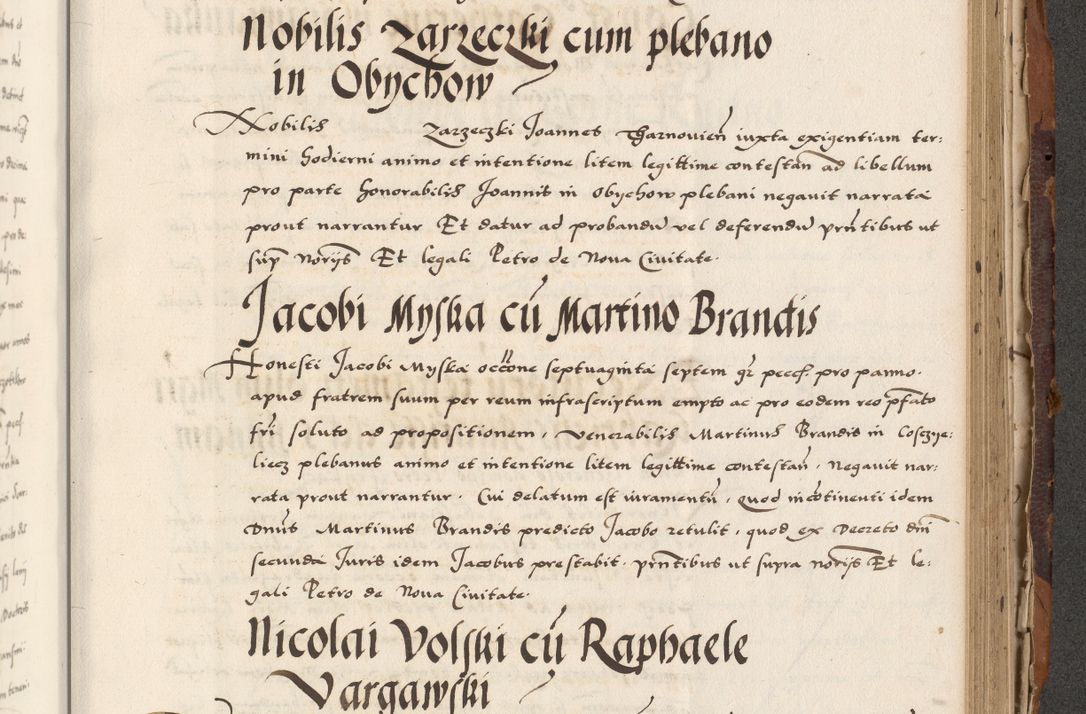 Nobilis Zarzeczki cum plebano
in Obychow
Nobilis Zarzeczki Joannes Tharnovieñ iuxta exigentiam ter:
mini hodierni animo et intentione litem legittime contestañ ad libellum
pro parte honorabilis Joannis in Obychow plebani negavit narrata
prout narrantur Et datur ad probandũ vel deferendũ pñtibus ut
sup̃ Norijs Et legali Petro de Nova Civitate.
Jacobi Myska cũ Martino Brandis
Honesti Jacobi Myska occõne septuaginta septem gr̃ pro panno.
apud fratrem suum per reum infrascriptum empto ac pro eodem reo p̃fato
fr̃i soluto ad propositionem, Venerabilis Martinus Brandis in Loszye:
liecz plebanus animo et intentione litem legittime contestañ. Negavit nar:
rata prout narrantur. Cui delatum est iuramentũ, Quod incõtinenti idem
Dñus Martinus Brandis predicto Jacobo retulit, quod ex Decreto dñi
secunda Juris idem Jacobus prestabit. pñtibus ut supra norijs Et le:
gali Petro de Nova Civitate.
Nicolai Volski cũ Raphaele
Vargawski